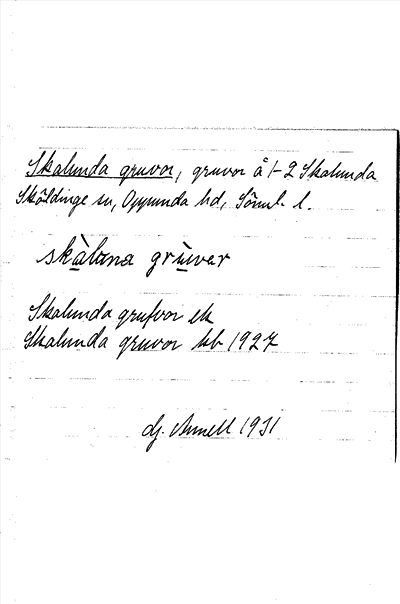 Skalunda gruvor, gruvor å 1-2 Skalunda
Sköldinge sn, Oppunda hd, Söml. l.
skàluna grùver
Skalunda grufvor ek
Skalunda gruvor kb 1927
Arnell 1931